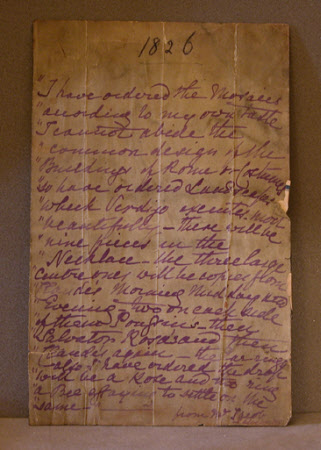 1826
"I have ordered the Mosaics
"according to my own taste
"I cannot abide the
"common design of the
Buildings of Rome &
so have ordered Landscapes
"which Verdejo executes most
"beautifully - there will be
"nine pieces in the
"Necklace - the three large
centre ones will be copies from
Claude's Morning Midday and
Evening - two on each side
of them Poussins - then
Salvator Rosas and then
Claudes again - the ear rings
"also I have ordered the drops
will be a Rose and the ring
a Bee appearing to settle on the
same -
from